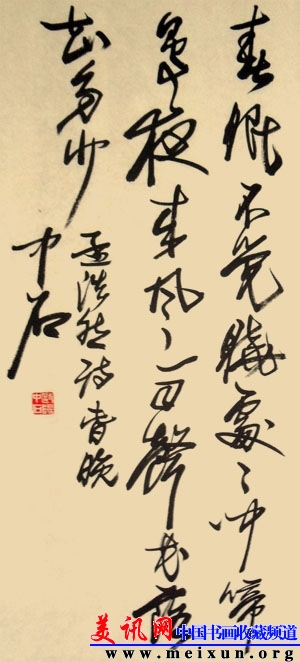 春眠不觉晓处处闻啼
鸟夜来风雨声花落
知多少
孟浩然诗春晓
中石
美讯网 中国书画收藏频道
www.meixun.org